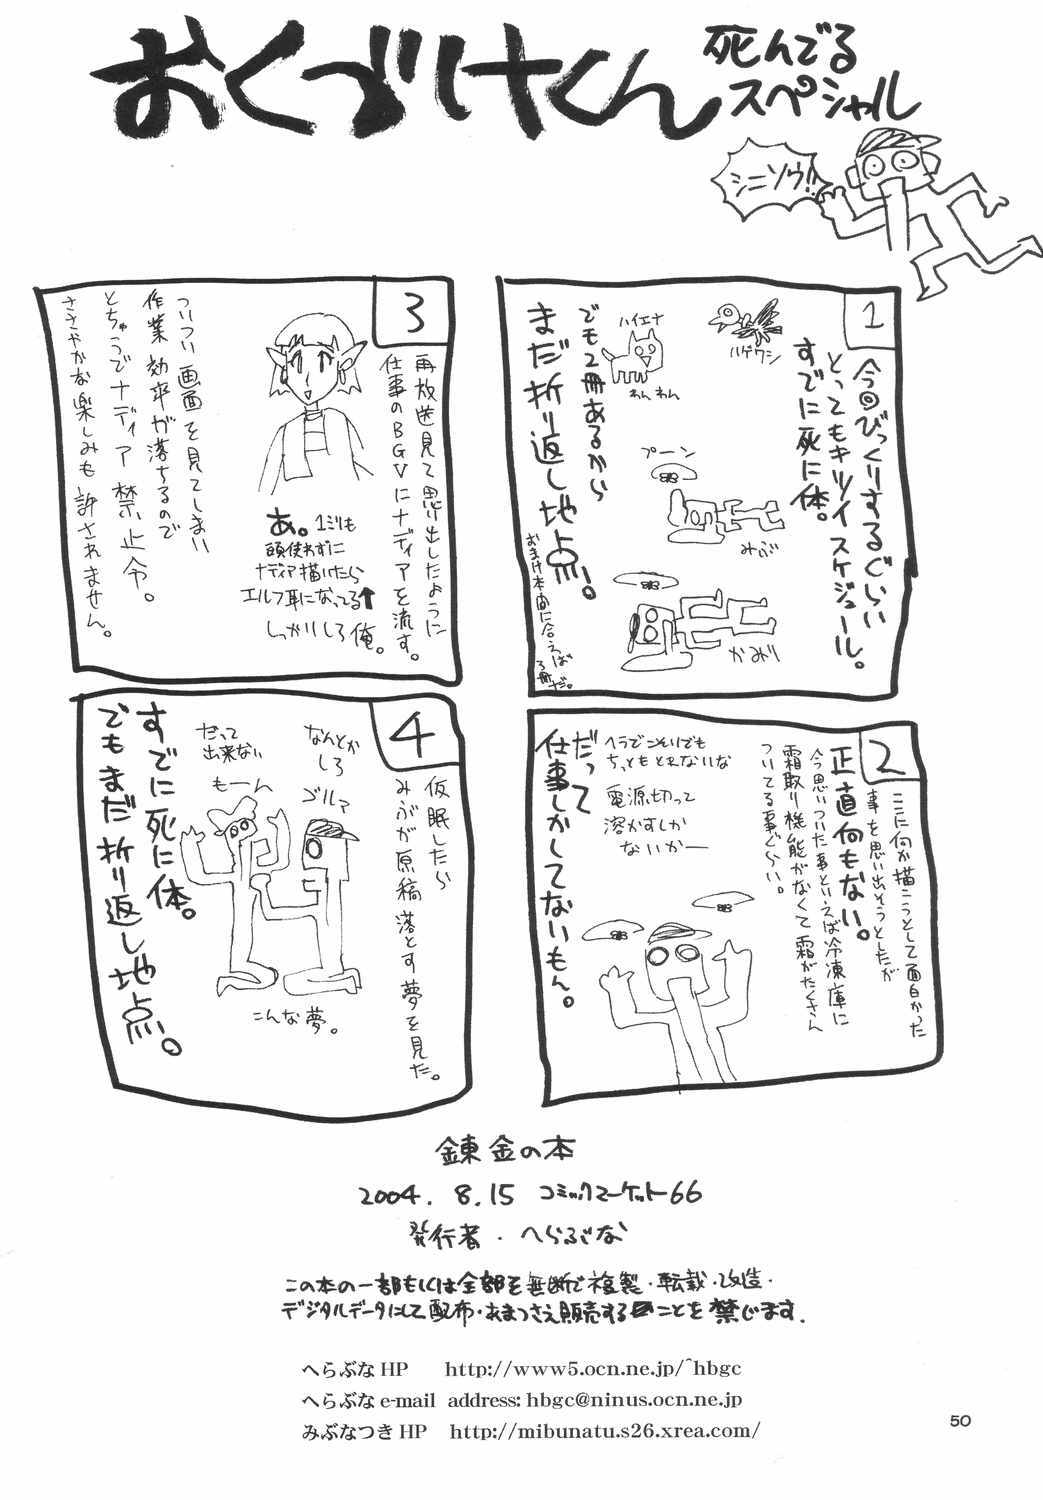 おくづけくん
死んでる
スペシャル
シニソウ!!
1
今回びっくりするぐらい
とってもキツイスケジュール。
すでに死に体。
ハゲワシ
ハイエナ
わんわん
でも2冊あるから
まだ折り返し地点!
プーン
みぶ
かみり
おまけ本間に合えば
3冊だ。
2
ここに何か描こうとして面白かった
事を思い出そうとしたが
正直何もない。
今思いついた事といえば冷凍庫に
霜取り機能がなくて霜がたくさん
ついてる事ぐらい。
ヘラでこそいでも
ちっともとれないな
電源切って
溶かすしか
ないかー
だって
仕事しかしてないもん。
3
再放送見て思い出したように
仕事のBGVにナディアを流す。
あ。1ミリも
頭使わずに
ナディア描いたら
エルフ耳になってる↑
しっかりしろ俺。
ついつい画面を見てしまい
作業効率が落ちるので
とちゅうでナディア禁止令。
ささやかな楽しみも許されません。
4
仮眠したら
みぶが原稿落とす夢を見た。
なんとか
しろ
ゴルァ
だって
出来ない
もーん
こんな夢。
すでに死に体。
でもまだ折り返し地点。
錬金の本
2004.8.15 コミックマーケット66
発行者・へらぶな
この本の一部もしくは全部を無断で複製・転載・改造・
デジタルデータにして配布・あまつさえ販売することを禁じます.
へらぶなHP http://www5.ocn.ne.jp/~hbgc
へらぶなe-mail address: hbgc@ninus.ocn.ne.jp
みぶなつきHP http://mibunatu.s26.xrea.com/
50